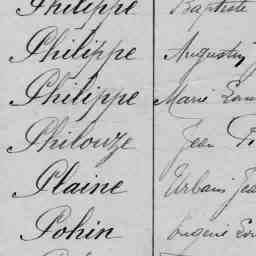 Philippe Baptiste
Philippe Augustin
Philippe Marie
Philouze Jean
Plaine Urbain
Pohin Eugène